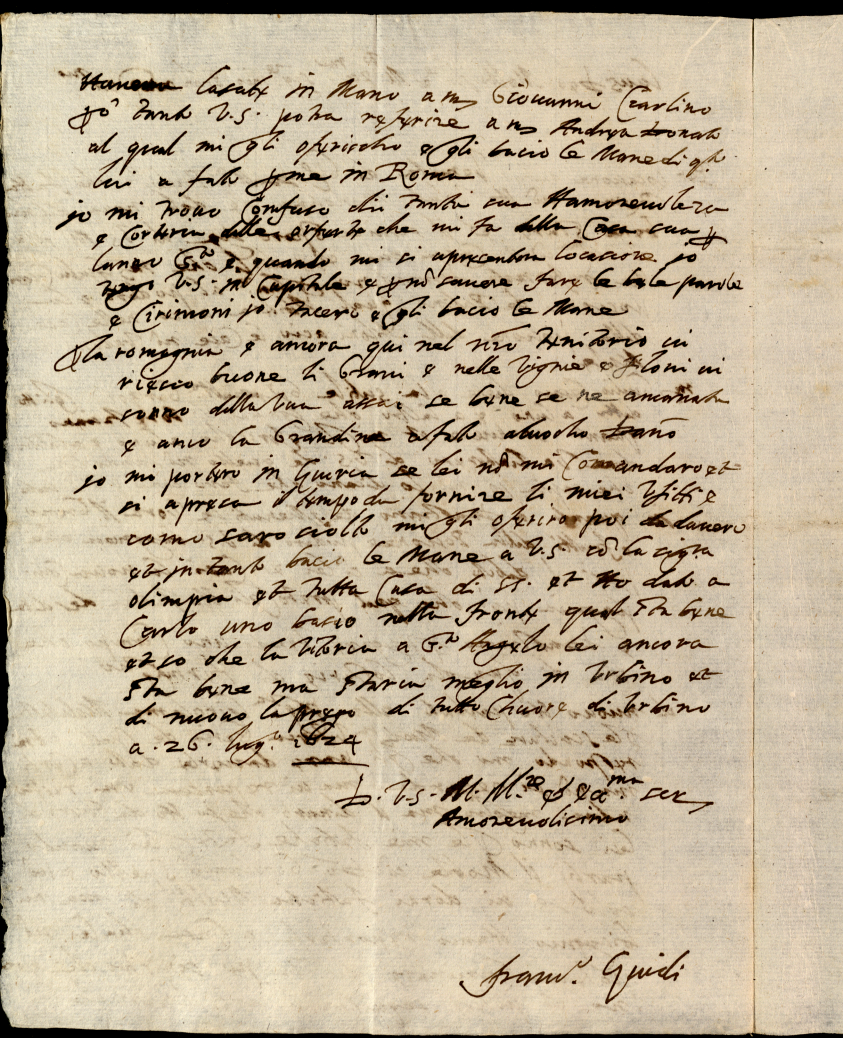 lasate in Mano a ms Giovanni Carlino
tanto V.S. potra referire a ms Andrea Donati
al qual mi gli oferischo e gli bacio le Mane di q.to
lui a fato p me in Roma
jo mi trovo Confuso di tanta sua Hamorevoleza
e Cortesia delle oferte che mi fa della Casa sua p
e quando mi si apresentera locasione jo
V.S. in Capitale e p nō savere fare le bele parole
e Cirimoni jo tacero e gli bacio le Mane
p la romagnia e ancora qui nel nr̄o teritorio vi
buone li Grani e nelle Vignie e vi
sonno della Vua assai se bene se ne amalata
e anco la Grandine a fato danō
jo mi portero in se lei nō mi Comandara et
si apresa il tempo da fornire li miei Ufitii e
como saro sciolto mi gli oferiro poi da davero
et in tanto bacio le Mane a V.S. cō la sigra
olimpia et tutta Casa di SS. et Ho dato a
Carlo uno bacio nella fronte qual sta bene
et so che la Vitoria a lei ancora
sta bene ma staria meglio in Urbino et
di nuovo la prego di tutto Chuore di Urbino
a . 26 . lug.o 1624
D. V.S. M. M.re ser
Amorevolisimo
franc.o Guidi